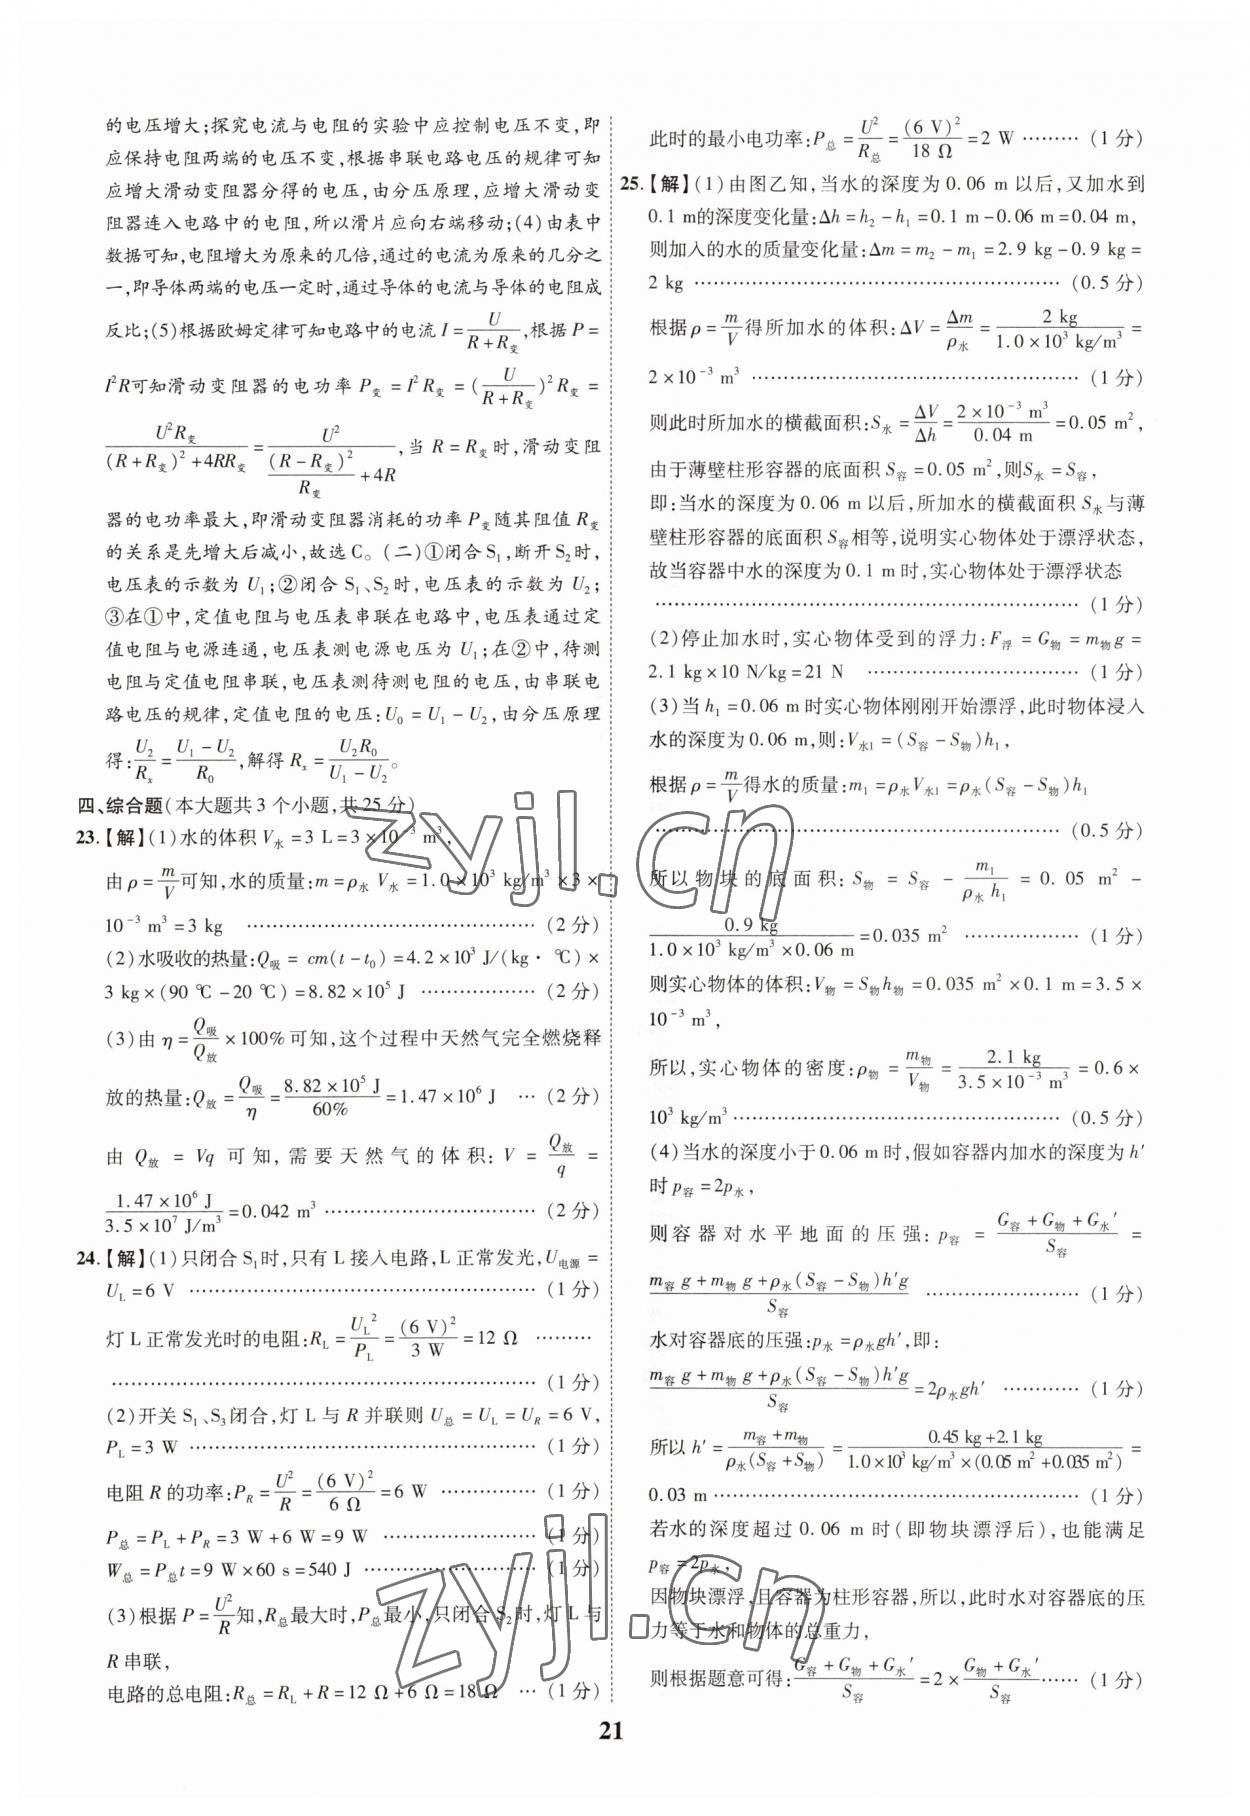 的电压增大;探究电流与电阻的实验中应控制电压不变,即
应保持电阻两端的电压不变,根据串联电路电压的规律可知
应增大滑动变阻器分得的电压,由分压原理,应增大滑动变
阻器连入电路中的电阻,所以滑片应向右端移动;(4)由表中
数据可知,电阻增大为原来的几倍,通过的电流为原来的几分之
一,即导体两端的电压一定时,通过导体的电流与导体的电阻成
反比;(5)根据欧姆定律可知电路中的电流 I = U/(R+R变),根据 P =
I²R可知滑动变阻器的电功率 P变 = I²R变 = (U/(R+R变))²R变 =
U²R变/((R+R变)²+4RR变) = U²/((R-R变)²/R变+4R),当 R=R变时,滑动变阻
器的电功率最大,即滑动变阻器消耗的功率 P变随其阻值 R变
的关系是先增大后减小,故选C。(二)①闭合S₁,断开S₂时,
电压表的示数为 U₁;②闭合 S₁、S₂时,电压表的示数为 U₂;
③在①中,定值电阻与电压表串联在电路中,电压表通过定
值电阻与电源连通,电压表测电源电压为 U₁;在②中,待测
电阻与定值电阻串联,电压表测待测电阻的电压,由串联电
路电压的规律,定值电阻的电压:U₀ = U₁ - U₂,由分压原理
得:U₂/Rₓ = (U₁-U₂)/R₀,解得 Rₓ = U₂R₀/(U₁-U₂)。
四、综合题(本大题共3个小题,共25分)
23.【解】(1)水的体积 V水 = 3 L = 3×10⁻³ m³,
由 ρ = m/V 可知,水的质量:m = ρ水 V水 = 1.0×10³ kg/m³×3×
10⁻³ m³ = 3 kg ……………… (2分)
(2)水吸收的热量:Q吸 = cm(t-t₀) = 4.2×10³ J/(kg·℃)×
3 kg×(90 ℃-20 ℃) = 8.82×10⁵ J ……………… (2分)
(3)由 η = Q吸/Q放 ×100%可知,这个过程中天然气完全燃烧释
放的热量:Q放 = Q吸/η = 8.82×10⁵ J/60% = 1.47×10⁶ J … (2分)
由 Q放 = Vq 可知,需要天然气的体积:V = Q放/q =
1.47×10⁶ J/3.5×10⁷ J/m³ = 0.042 m³ ……………… (2分)
24.【解】(1)只闭合S₁时,只有L接入电路,L正常发光,U电源 =
U_L = 6 V ……………… (1分)
灯L正常发光时的电阻:R_L = U_L²/P_L = (6 V)²/3 W = 12 Ω ………
……………… (1分)
(2)开关 S₁、S₃闭合,灯 L 与 R 并联则 U总 = U_L = U_R = 6 V,
P_L = 3 W ……………… (1分)
电阻 R 的功率:P_R = U²/R = (6 V)²/6 Ω = 6 W …………… (1分)
P总 = P_L + P_R = 3 W+6 W = 9 W ……………… (1分)
W总 = P总t = 9 W×60 s = 540 J ……………… (1分)
(3)根据 P = U²/R 知,R总最大时,P总最小,只闭合S₂时,灯L与
R串联,
电路的总电阻:R总 = R_L + R = 12 Ω+6 Ω = 18 Ω … (1分)
此时的最小电功率:P总 = U²/R总 = (6 V)²/18 Ω = 2 W ……… (1分)
25.【解】(1)由图乙知,当水的深度为0.06 m以后,又加水到
0.1 m的深度变化量:Δh = h₂ - h₁ = 0.1 m-0.06 m = 0.04 m,
则加入的水的质量变化量:Δm = m₂ - m₁ = 2.9 kg-0.9 kg =
2 kg ……………… (0.5分)
根据 ρ = m/V 得所加水的体积:ΔV = Δm/ρ水 = 2 kg/1.0×10³ kg/m³ =
2×10⁻³ m³ ……………… (1分)
则此时所加水的横截面积:S水 = ΔV/Δh = 2×10⁻³ m³/0.04 m = 0.05 m²,
由于薄壁柱形容器的底面积 S容 = 0.05 m²,则S水 = S容,
即:当水的深度为0.06 m以后,所加水的横截面积 S水与薄
壁柱形容器的底面积 S容相等,说明实心物体处于漂浮状态,
故当容器中水的深度为0.1 m时,实心物体处于漂浮状态
……………… (1分)
(2)停止加水时,实心物体受到的浮力:F浮 = G物 = m物g =
2.1 kg×10 N/kg = 21 N ……………… (1分)
(3)当 h₁ = 0.06 m时实心物体刚刚开始漂浮,此时物体浸入
水的深度为0.06 m,则:V水1 = (S容-S物)h₁,
根据 ρ = m/V 得水的质量:m₁ = ρ水V水1 = ρ水(S容-S物)h₁
……………… (0.5分)
所以物块的底面积:S物 = S容 - m₁/(ρ水 h₁) = 0.05 m² -
0.9 kg/(1.0×10³ kg/m³×0.06 m) = 0.035 m² …………… (1分)
则实心物体的体积:V物 = S物h物 = 0.035 m²×0.1 m = 3.5×
10⁻³ m³,
所以,实心物体的密度:ρ物 = m物/V物 = 2.1 kg/3.5×10⁻³ m³ = 0.6×
10³ kg/m³ ……………… (0.5分)
(4)当水的深度小于0.06 m时,假如容器内加水的深度为h′
时 p容 = 2p水,
则容器对水平地面的压强:p容 = (G容+G物+G水′)/S容 =
(m容g+m物g+ρ水(S容-S物)h′g)/S容 ……………… (1分)
水对容器底的压强:p水 = ρ水gh′,即:
(m容g+m物g+ρ水(S容-S物)h′g)/S容 = 2ρ水gh′ ………… (1分)
所以 h′ = (m容+m物)/(ρ水(S容+S物)) = (0.45 kg+2.1 kg)/(1.0×10³ kg/m³×(0.05 m²+0.035 m²)) =
0.03 m ……………… (1分)
若水的深度超过0.06 m时(即物块漂浮后),也能满足
p容 = 2p水,
因物块漂浮,且容器为柱形容器,所以,此时水对容器底的压
力等于水和物体的总重力,
则根据题意可得:(G容+G物+G水′)/S容 = 2×(G物+G水′)/S容 …… (1分)
21
zyjl.cn
zyjl.cn